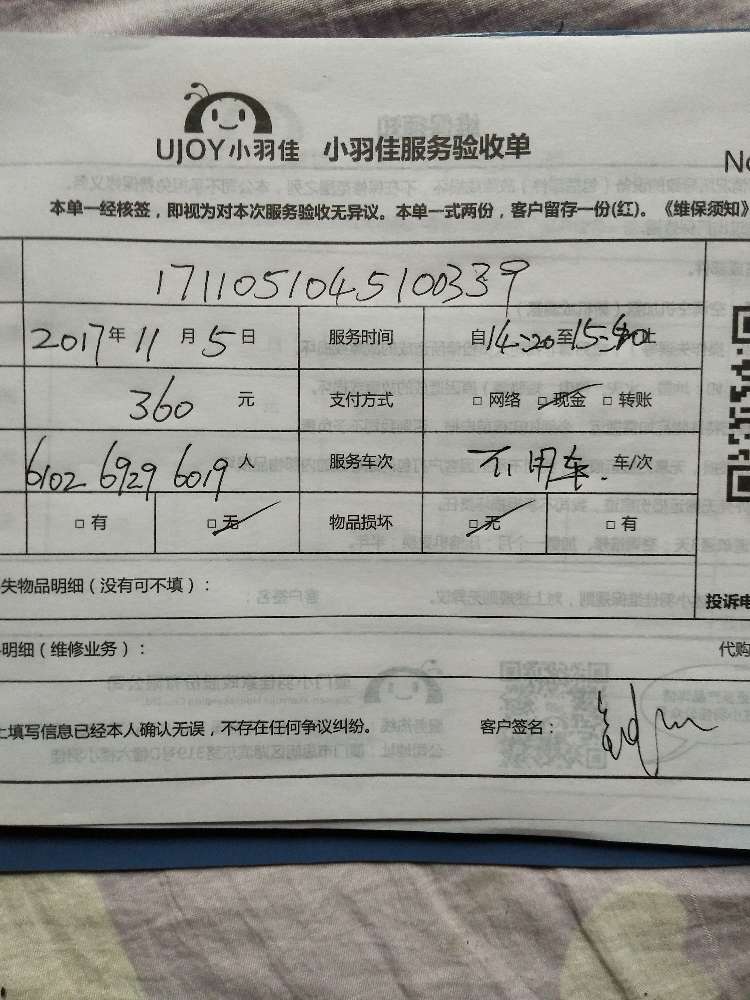 UJOY小羽佳 小羽佳服务验收单
No
本单一经核签，即视为对本次服务验收无异议。本单一式两份，客户留存一份(红)。《维保须知》
1711051045100339
2017年 11 月 5 日 服务时间 自14:20至15:50止
360 元 支付方式 □ 网络 □ 现金 □ 转账
6102 6929 6019 人 服务车次 不用车. 车/次
□ 有 □ 无 物品损坏 □ 无 □ 有
失物品明细（没有可不填）：
投诉电
明细（维修业务）： 代购
上填写信息已经本人确认无误，不存在任何争议纠纷。 客户签名：